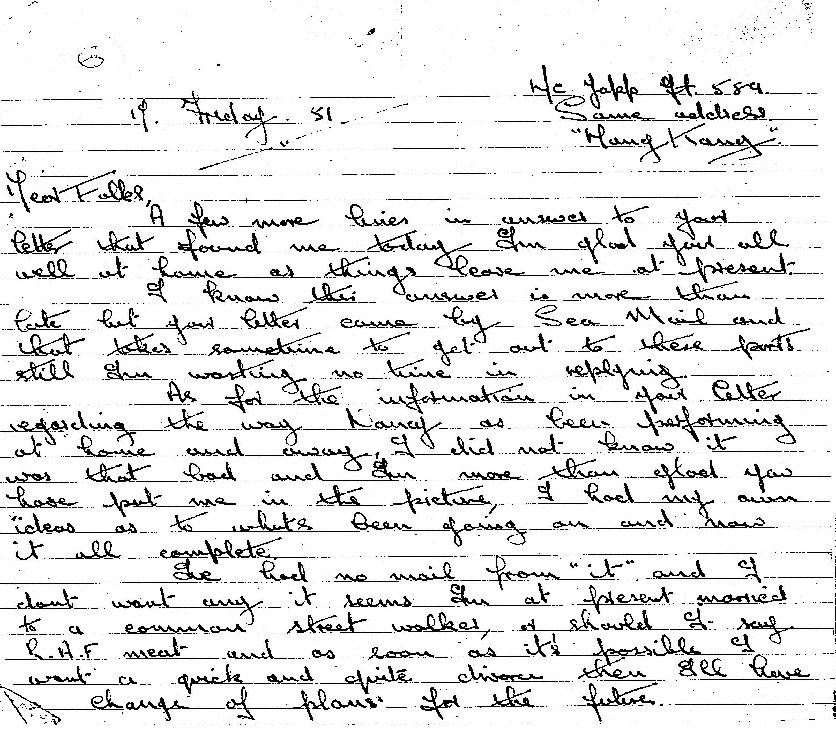 Yapp Ft. 589.
Friday 51.
Same address
"Hong Kong".
Dear Folks,
A few more lines in answer to your
letter that found me today I'm glad your all
well at home as things leave me at present.
I know this answer is more than
late but your letter came by Sea Mail and
that takes sometime to get out to these parts
still I'm wasting no time in replying.
As for the information in your letter
regarding the way Nancy as been performing
at home and away, I did not know it
was that bad and I'm more than glad you
have put me in the picture, I had my own
ideas as to whats been going on and now
it all complete.
I've had no mail from "it" and I
dont want any it seems I'm at present married
to a common street walker, or should I say
R.A.F meat and as soon as it's possible I
want a quick and quite divorce then I'll have
change of plans for the future.